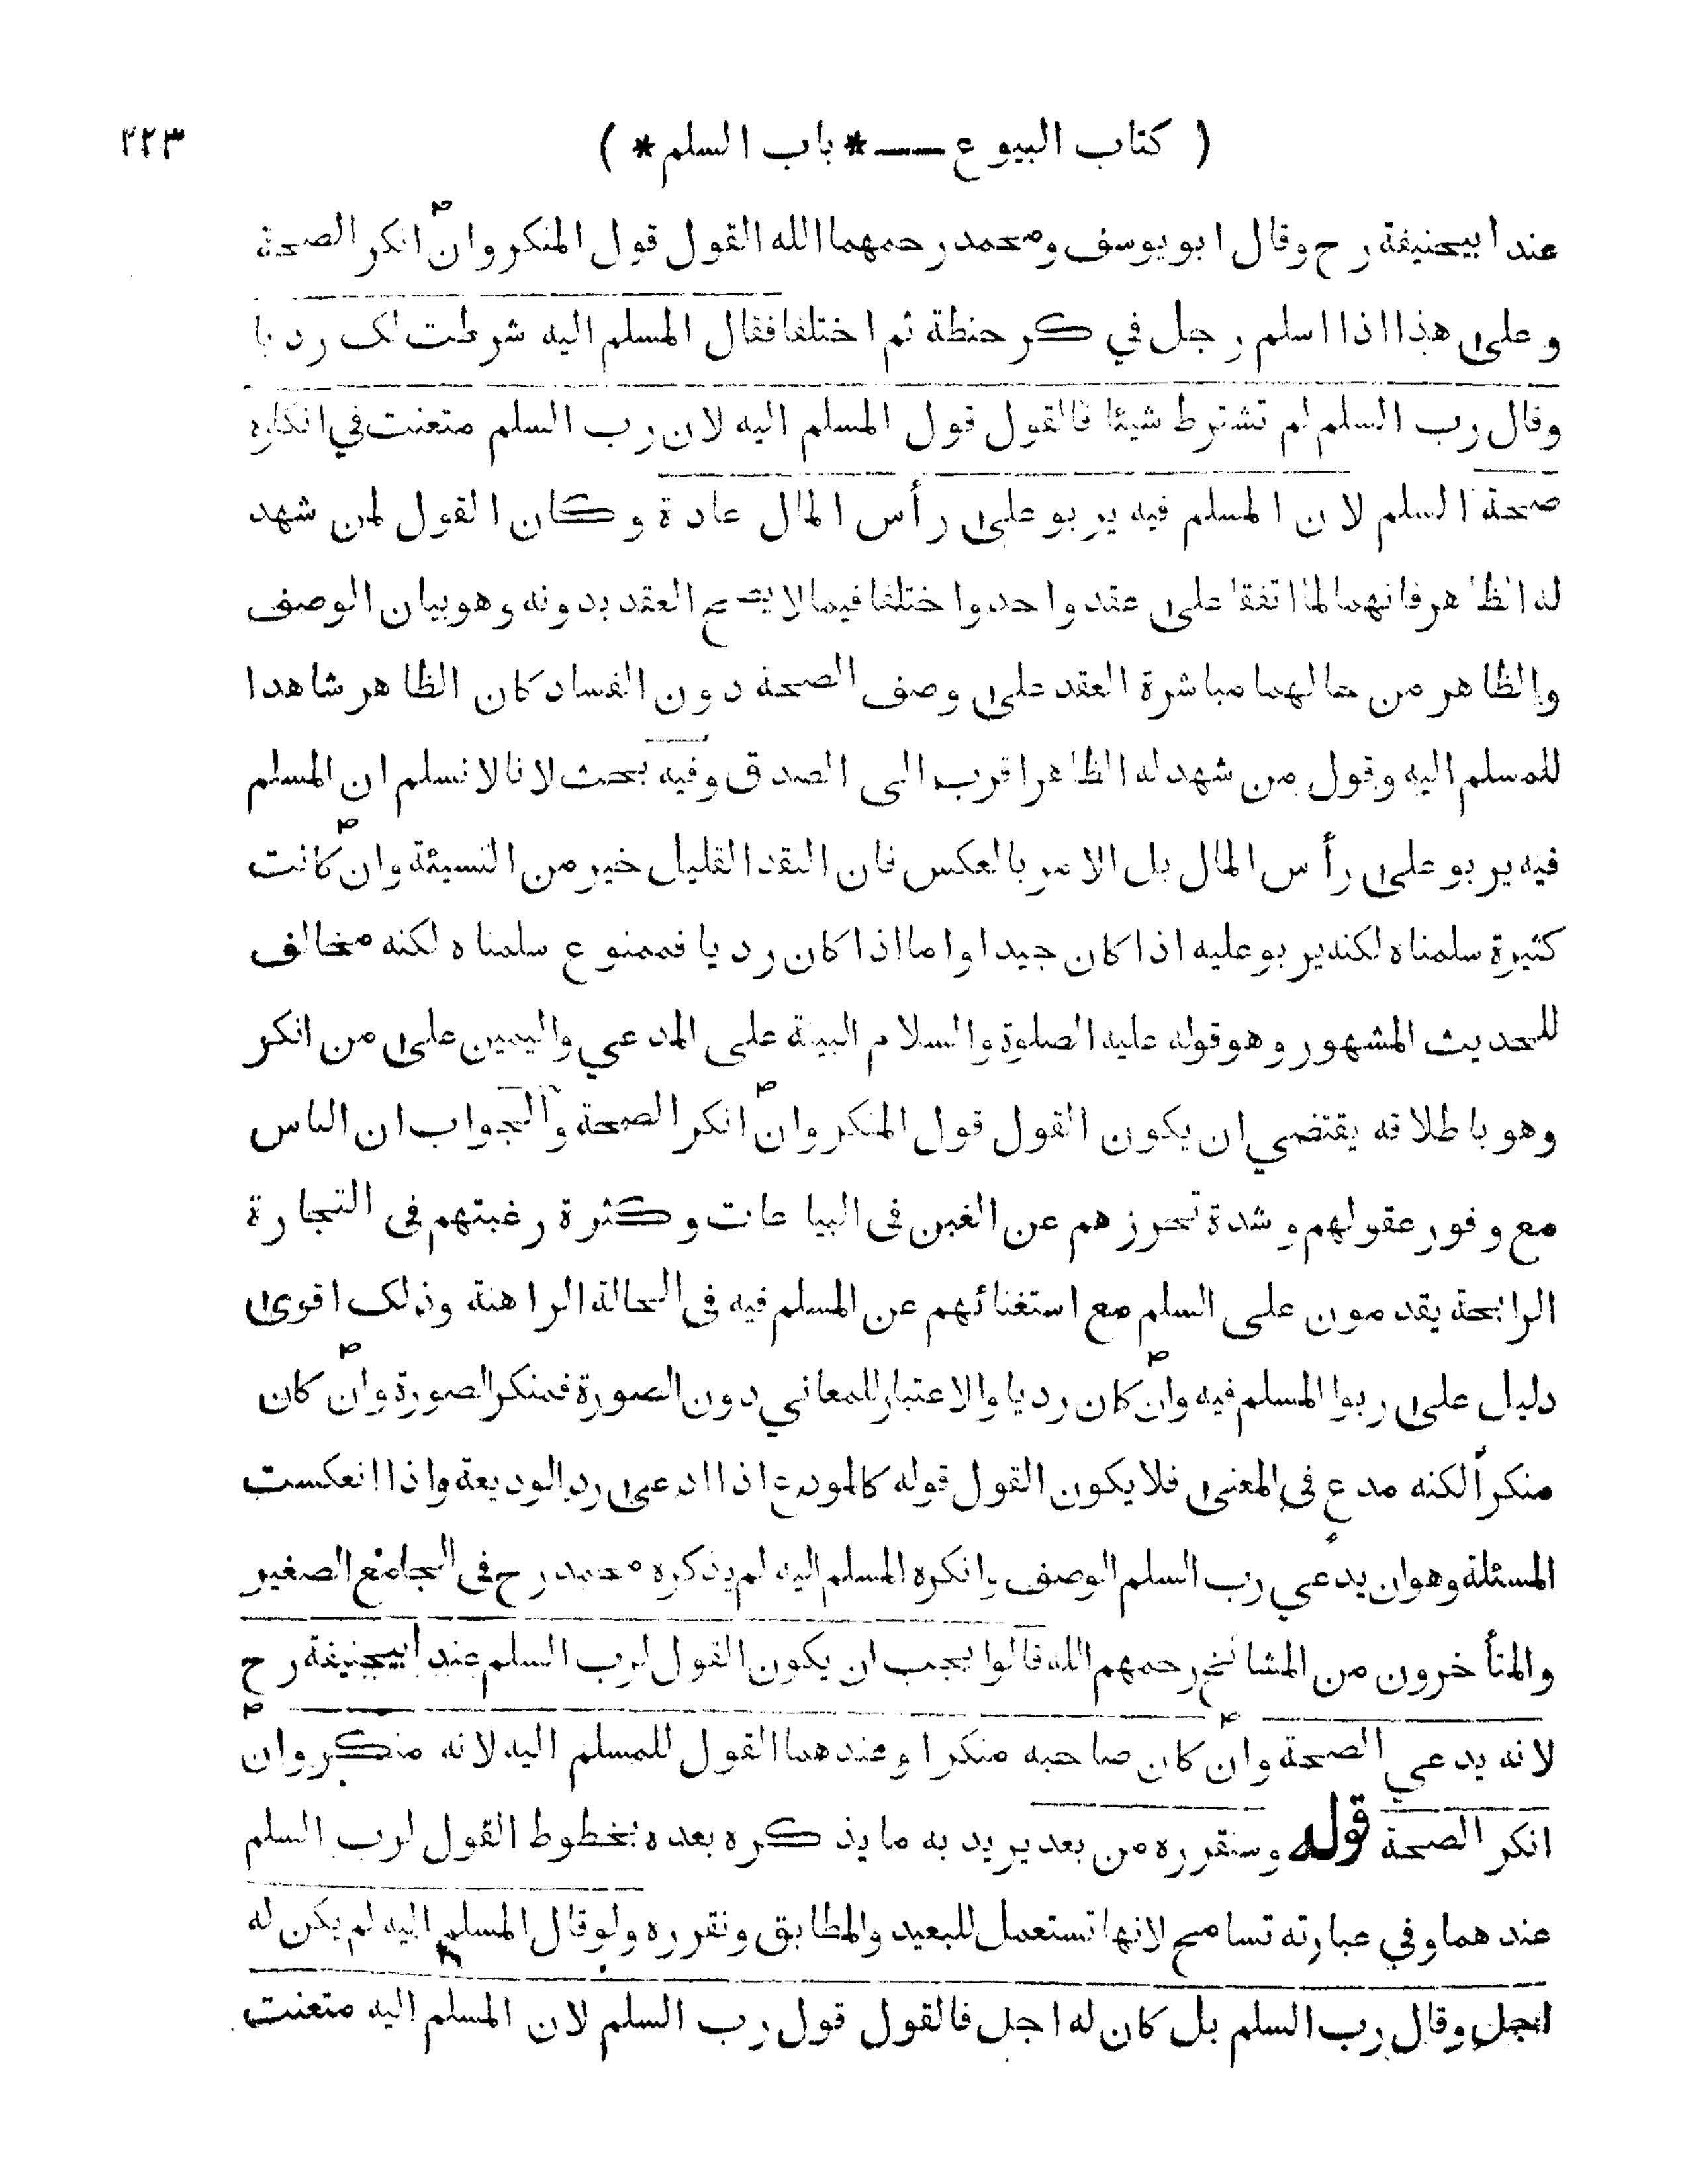 ( كتاب البيوع —— * باب السلم * ) ٢٢٣
عند ابيحنيفة رح وقال ابو يوسف ومحمد رحمهما الله القول قول المنكر وان انكر الصحة
وعلى هذا اذا اسلم رجل في كر حنطة ثم اختلفا فقال المسلم اليه شرطت لك رديا
وقال رب السلم لم تشترط شيئا فالقول قول المسلم اليه لان رب السلم متعنت في انكاره
صحة السلم لان المسلم فيه يربو على رأس المال عادة وكان القول لمن شهد
له الظاهر فانهما لما اتفقا على عقد واحد واختلفا فيما لا يصح العقد بدونه وهو بيان الوصف
والظاهر من حالهما مباشرة العقد على وصف الصحة دون الفساد كان الظاهر شاهدا
للمسلم اليه وقول من شهد له الظاهر اقرب الى الصدق وفيه بحث لانا لا نسلم ان المسلم
فيه يربو على رأس المال بل الامر بالعكس فان النقد القليل خير من النسيئة وان كانت
كثيرة سلمناه لكنه يربو عليه اذا كان جيدا واما اذا كان رديا فممنوع سلمناه لكنه مخالف
للحديث المشهور وهو قوله عليه الصلوة والسلام البينة على المدعي واليمين على من انكر
وهو باطلاقه يقتضي ان يكون القول قول المنكر وان انكر الصحة والجواب ان الناس
مع وفور عقولهم وشدة تحرزهم عن الغبن في البياعات وكثرة رغبتهم في التجارة
الرابحة يقدمون على السلم مع استغنائهم عن المسلم فيه في الحالة الراهنة وذلك اقوى
دليل على ربوا المسلم فيه وان كان رديا والاعتبار للمعاني دون الصورة فمنكر الصورة وان كان
منكرا لكنه مدع في المعنى فلا يكون القول قوله كالمودع اذا ادعى رد الوديعة واذا انعكست
المسئلة وهو ان يدعي رب السلم الوصف وانكره المسلم اليه لم يذكره محمد رح في الجامع الصغير
والمتأخرون من المشائخ رحمهم الله قالوا يجب ان يكون القول لرب السلم عند ابيحنيفة رح
لانه يدعي الصحة وان كان صاحبه منكرا وعندهما القول للمسلم اليه لانه منكر وان
انكر الصحة قوله وسنقرره من بعد يريد به ما يذكره بعده بخطوط القول لرب السلم
عندهما وفي عبارته تسامح لانها تستعمل للبعيد والمطابق ونقرره ولو قال المسلم اليه لم يكن له
اجل وقال رب السلم بل كان له اجل فالقول قول رب السلم لان المسلم اليه متعنت